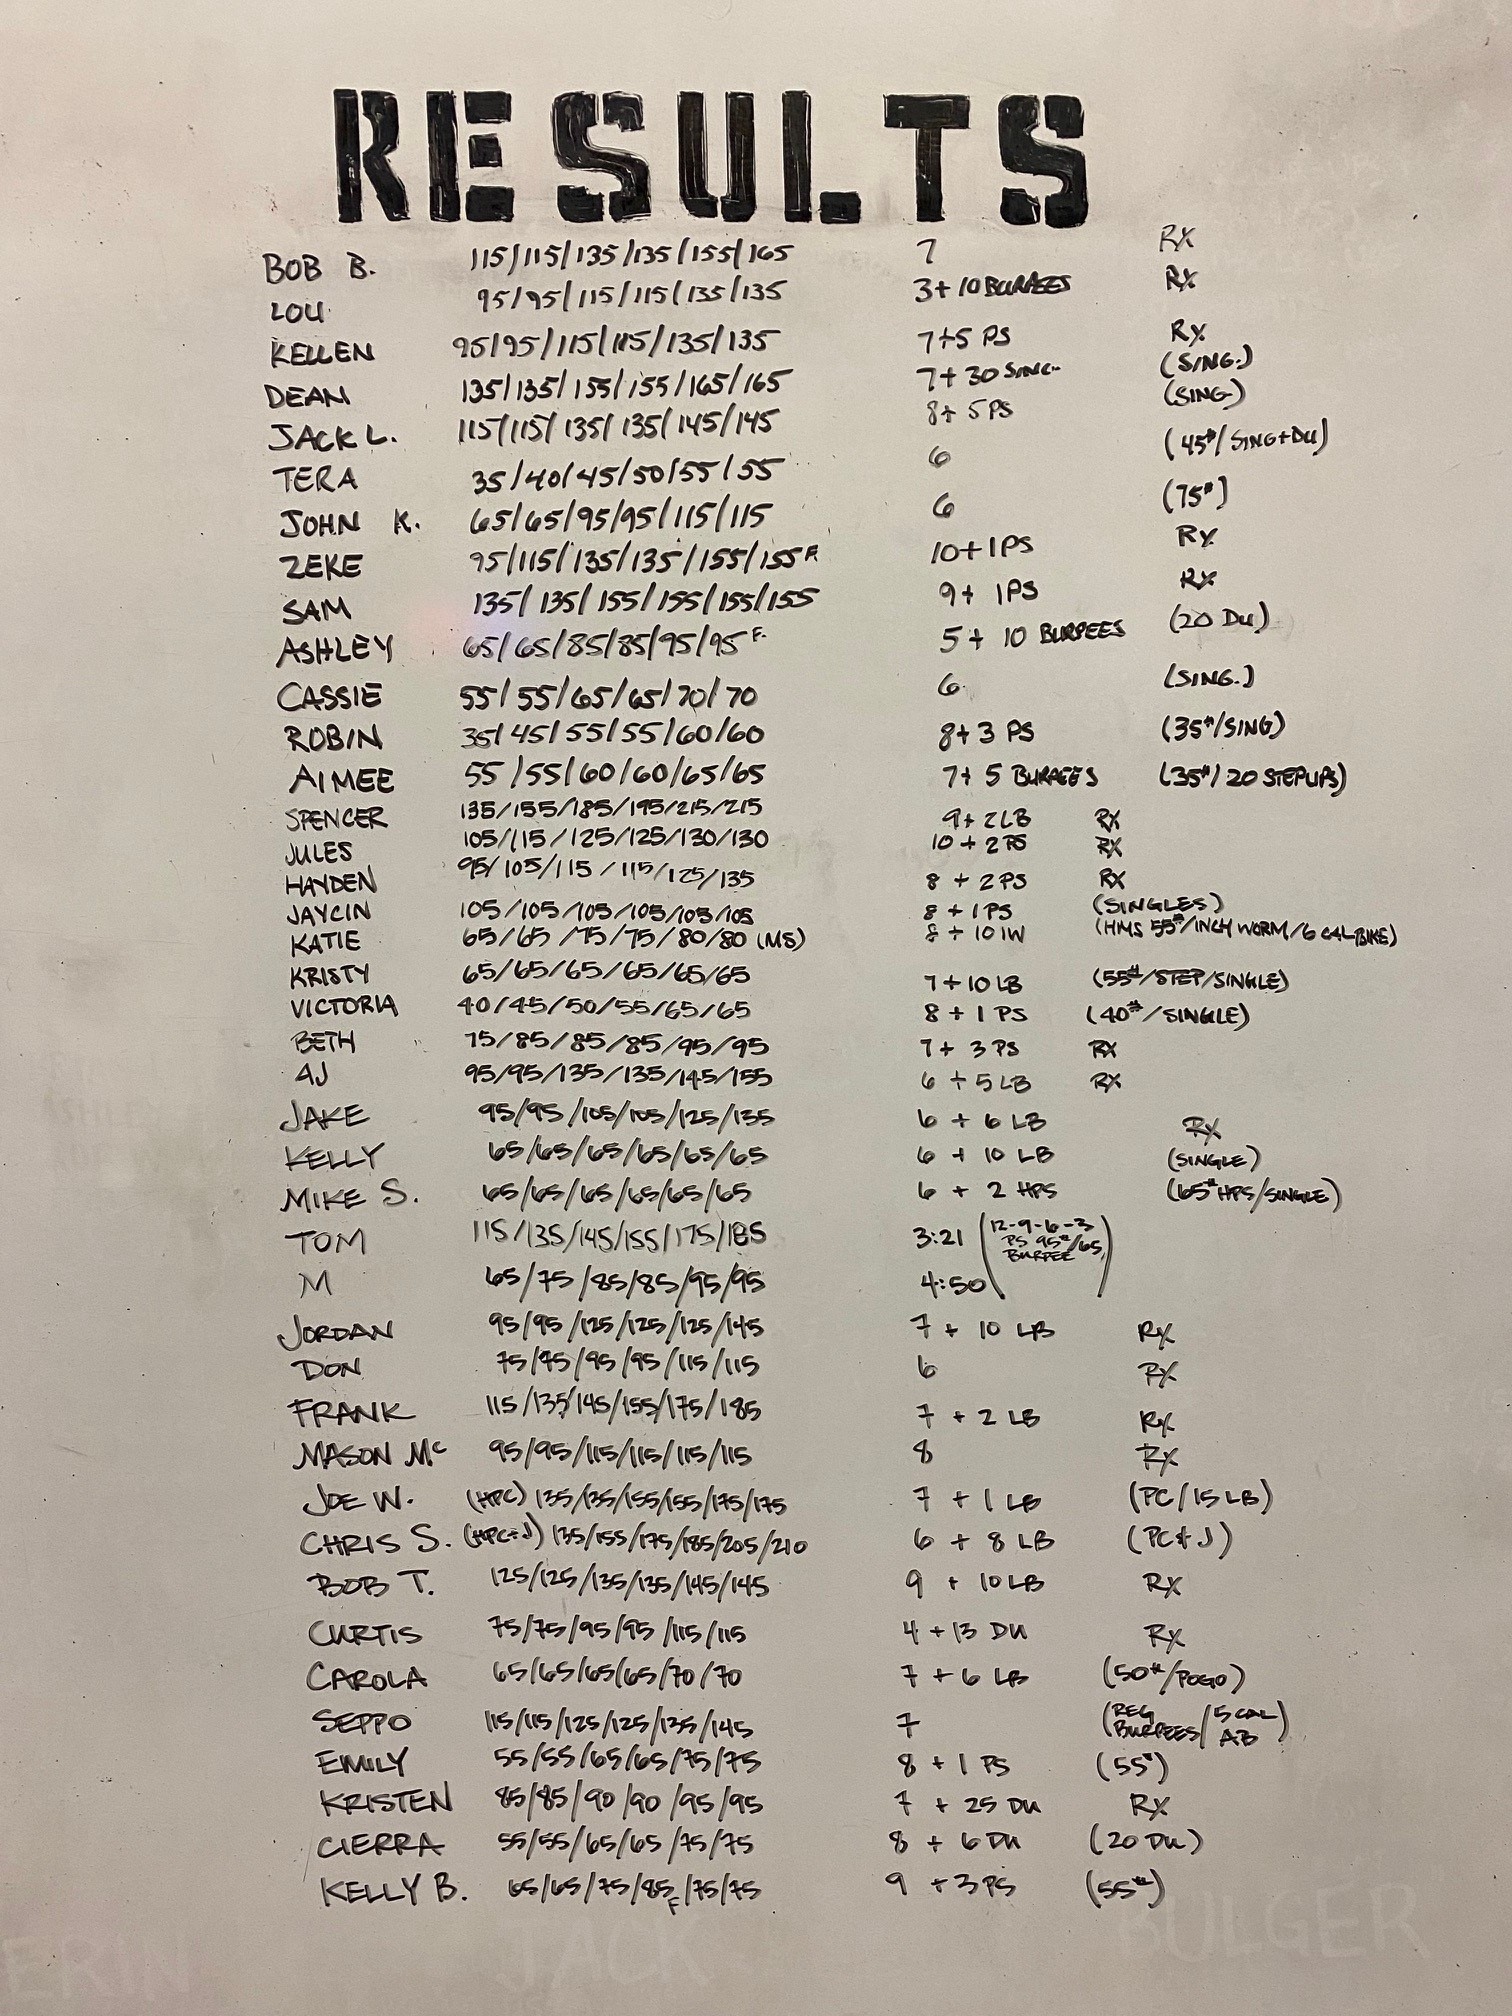 RESULTS
BOB B. 115/115/135/135/155/165 7 RX
LOU 95/95/115/115/135/135 3+10 BURPEES RX
KELLEN 95/95/115/115/135/135 7+5 PS RX
DEAN 135/135/155/155/165/165 7+30 SING. (SING.)
JACK L. 115/115/135/135/145/145 8+5 PS (SING)
TERA 35/40/45/50/55/55 6 (45#/SING+DU)
JOHN K. 65/65/95/95/115/115 6 (75#)
ZEKE 95/115/135/135/155/155 F. 10+1 PS RX
SAM 135/135/155/155/155/155 9+ 1PS RX
ASHLEY 65/65/85/85/95/95 F. 5 + 10 BURPEES (20 DU)
CASSIE 55/55/65/65/70/70 6 (SING.)
ROBIN 35/45/55/55/60/60 8+3 PS (35#/SING)
AIMEE 55/55/60/60/65/65 7+ 5 BURPEES (35#/20 STEPUPS)
SPENCER 135/155/185/195/215/215 9+2LB RX
JULES 105/115/125/125/130/130 10+2PS RX
HAYDEN 95/105/115/115/125/135 8 + 2PS RX
JAYCIN 105/105/105/105/105/105 8 + 1PS (SINGLES)
KATIE 65/65/75/75/80/80 (MS) 8 + 10 IW (HMS 55#/INCH WORM/6 CAL BIKE)
KRISTY 65/65/65/65/65/65 7+10 LB (55#/STEP/SINGLE)
VICTORIA 40/45/50/55/65/65 8 + 1 PS (40#/SINGLE)
BETH 75/85/85/85/95/95 7+ 3 PS RX
AJ 95/95/135/135/145/155 6 + 5 LB RX
JAKE 95/95/105/105/125/135 6 + 6 LB RX
KELLY 65/65/65/65/65/65 6 + 10 LB (SINGLE)
MIKE S. 65/65/65/65/65/65 6 + 2 HPS (65# HPS/SINGLE)
TOM 115/135/145/155/175/185 3:21 (12-9-6-3
PS 95#/65
BURPEE)
M 65/75/85/85/95/95 4:50
JORDAN 95/95/125/125/125/145 7 + 10 LB RX
DON 75/75/95/95/115/115 6 RX
FRANK 115/135/145/155/175/185 7 + 2 LB RX
MASON Mc 95/95/115/115/115/115 8 RX
JOE W. (HPC) 135/135/155/155/175/175 7 + 1 LB (PC/15 LB)
CHRIS S. (HPC+J) 135/155/175/185/205/210 6 + 8 LB (PC+J)
BOB T. 125/125/135/135/145/145 9 + 10 LB RX
CURTIS 75/75/95/95/115/115 4 + 13 DU RX
CAROLA 65/65/65/65/70/70 7 + 6 LB (50#/POGO)
SEPPO 115/115/125/125/135/145 7 (REG BURPEES/5 CAL AB)
EMILY 55/55/65/65/75/75 8 + 1 PS (55#)
KRISTEN 85/85/90/90/95/95 7 + 25 DU RX
CIERRA 55/55/65/65/75/75 8 + 6 DU (20 DU)
KELLY B. 65/65/75/85 F/75/75 9 + 3 PS (55#)
ERIN JACK BULGER